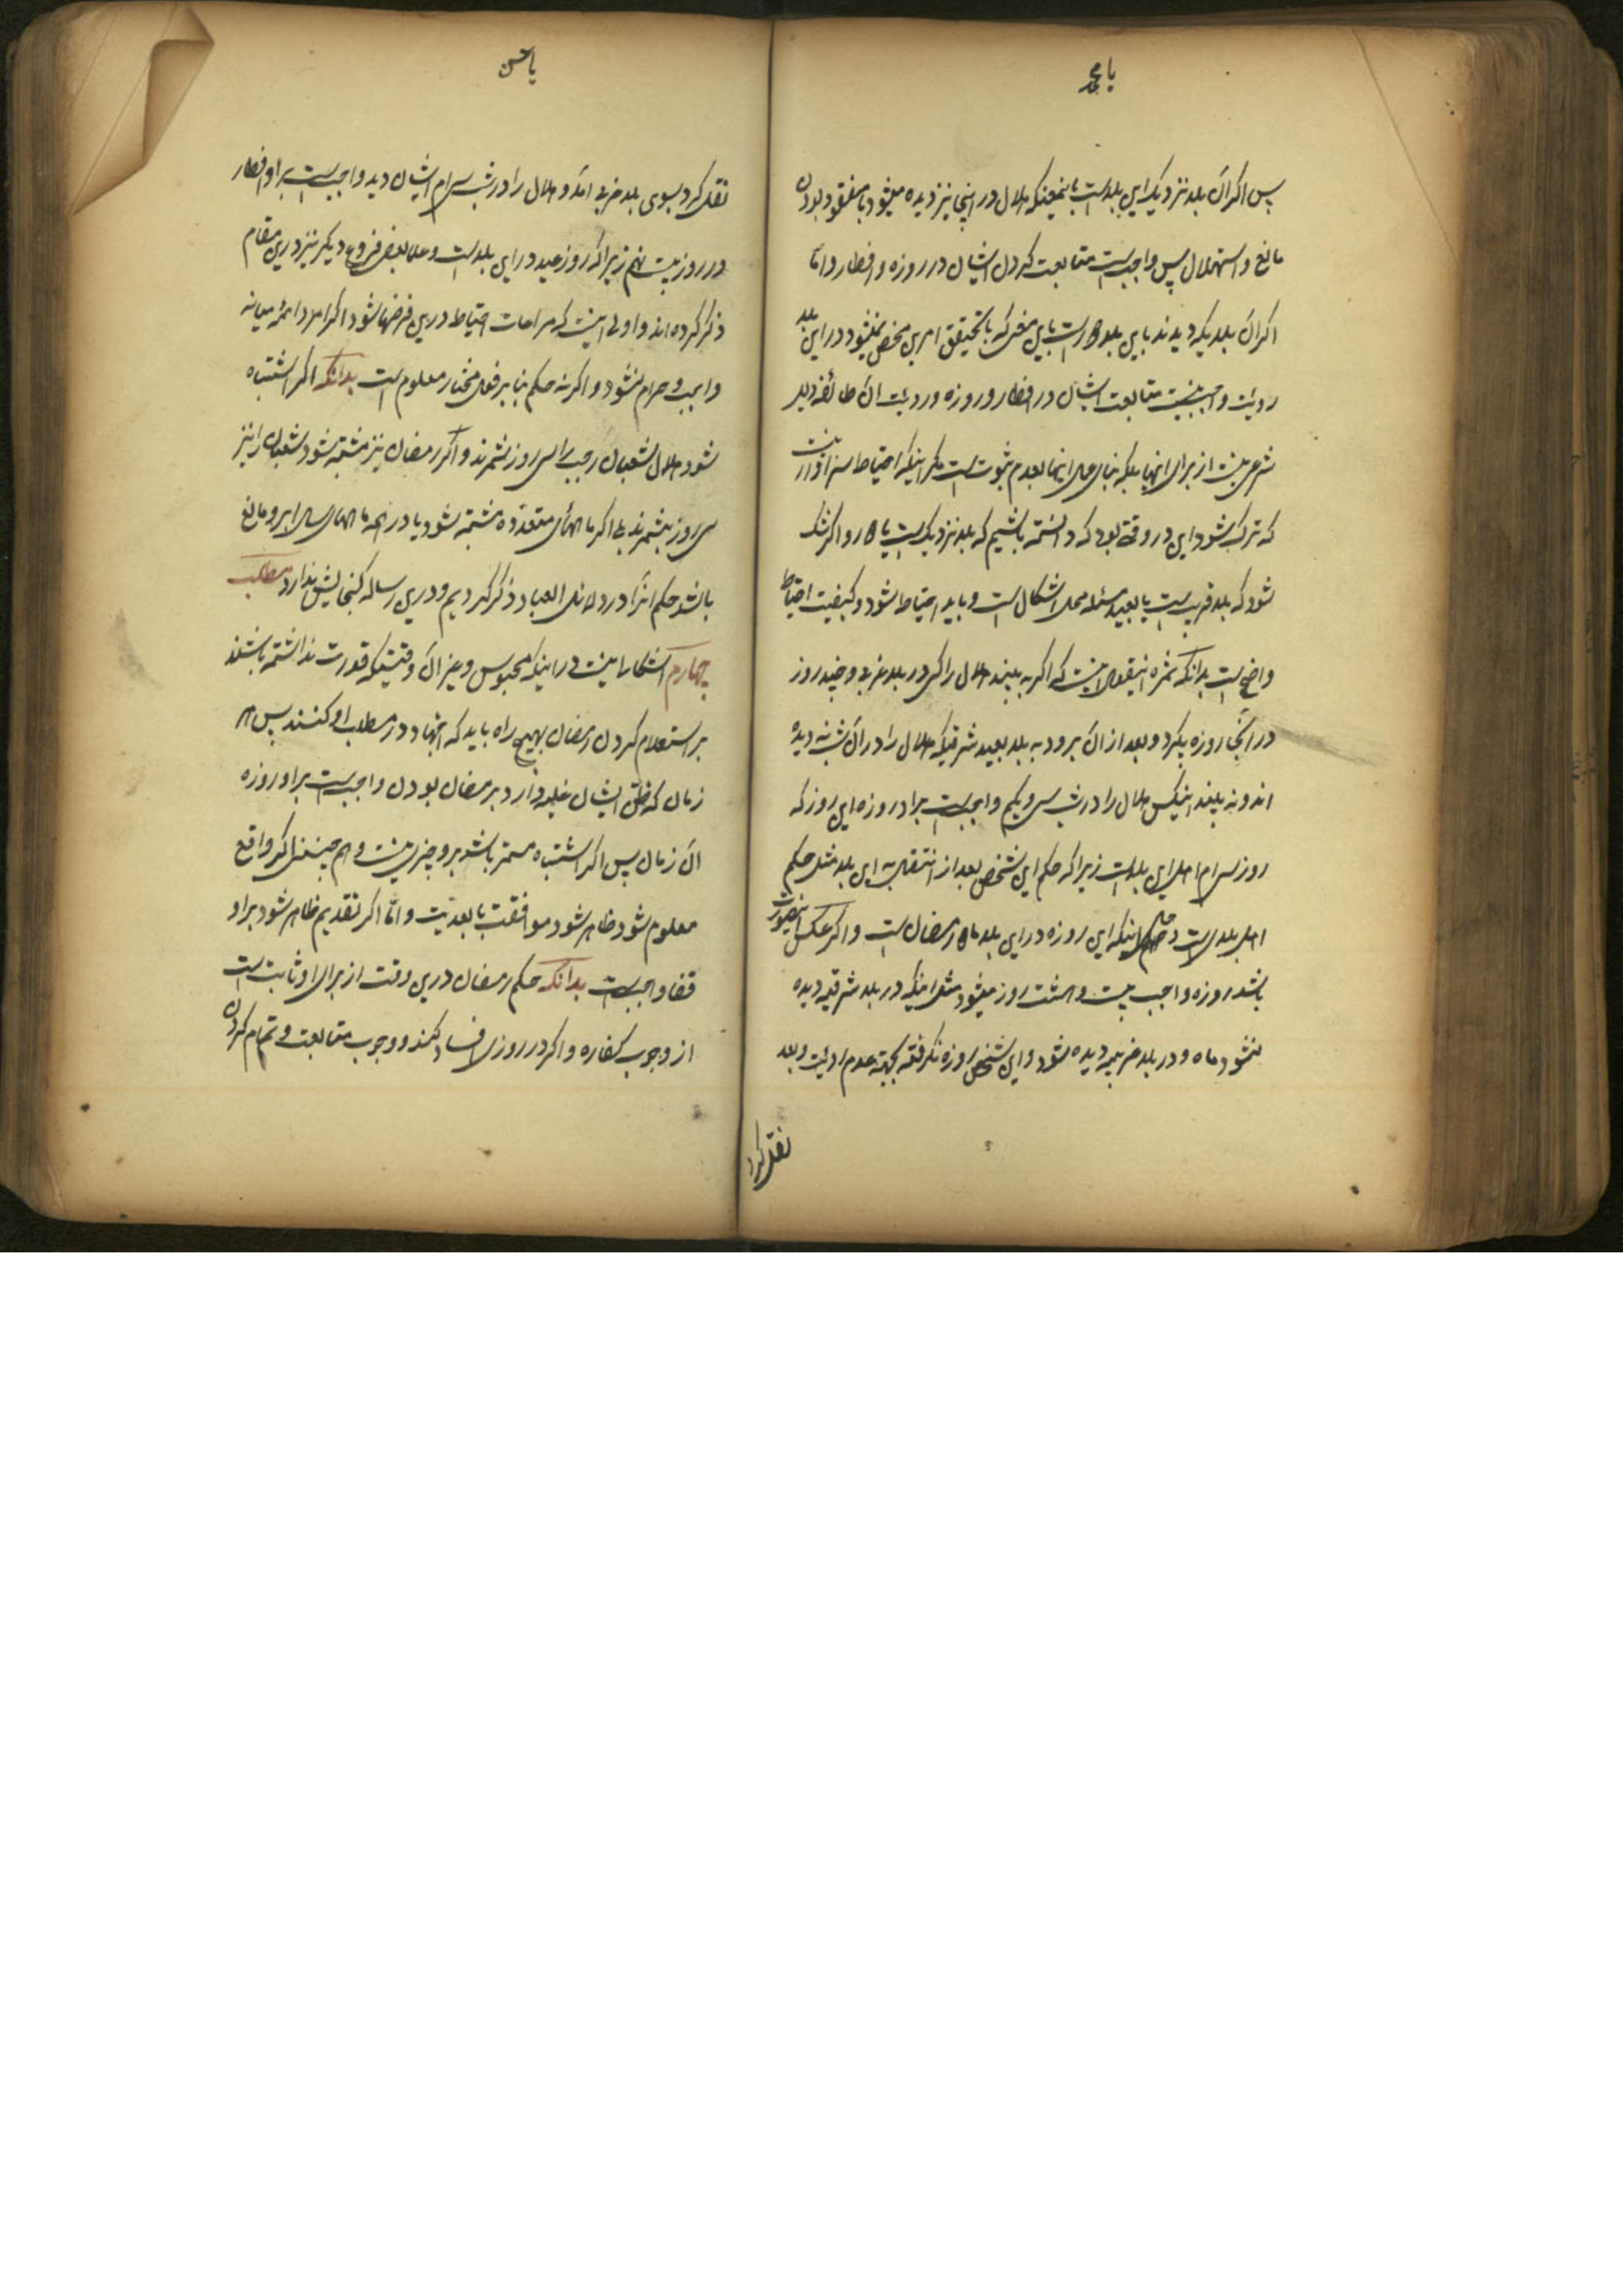 یا محمد
پس اگر آن بلد نزدیک این بلد است باینمعنیکه هلال در اینجا نیز دیده میشود با مفقود بودن
مانع و استهلال پس واجب است متابعت کردن ایشان در روزه و افطار و امّا
اگر آن بلدیکه دیدند باین بلد دور است باین معنی که با تحقیق امرین مخفی نمیشود در این بلد
رویت واجب نیست متابعت ایشان در افطار و روزه و رویت آن طائفه دلیل
شرعی نیست از برای اینها بلکه بنای عمل اینها بعدم ثبوت است مگر اینکه احتیاط سزاوار نیست
که ترک شود این در وقتی بود که دانسته باشیم که بلد نزدیک است یا دور و اگر شک
شود که بلد قریب است یا بعید مسئله محل اشکال است و باید احتیاط شود و کیفیت احتیاط
واضح است بدانکه ثمره اینقول اینست که اگر به بیند هلال را کسی در بلد غربی و چند روز
در آنجا روزه بگیرد و بعد از آن برود به بلد بعید شرقیکه هلال را در آن شب ندیده
اند و نه بیند اینکس هلال را در شب سی و یکم واجب است بر او روزه این روز که
روز سی ام اهل این بلد است زیرا که حکم این شخص بعد از انتقال به این بلد مثل حکم
اهل بلد است و حکم اینکه این روزه در این بلد ماه رمضان است و اگر عکس اینصورت
باشد روزه واجب بیست و هشت روز میشود مثل اینکه در بلد شرقیه دیده
نشود ماه و در بلد غربیه دیده شود و این شخص روزه نگرفته بجهة عدم رویت و بعد
نقل کرد
یا حسن
نقل کرد بسوی بلد غربی آمد و هلال را در شب سی ام ایشان دید واجب است بر او افطار
در روز بیست نهم زیرا که روز عید در این بلد است و علما بعض فروع دیگر نیز درین مقام
ذکر کرده اند و اولی اینست که مراعات احتیاط درین فرضها شود اگر امر دائر میانه
واجب و حرام نشود و اگر نه حکم بنا بر قول مختار معلوم است بدانکه اگر اشتباه
شود هلال شعبان رجب را سی روز بشمرند و اگر رمضان نیز مشتبه شود شعبان را نیز
سی روز بشمرند بلی اگر ماههای متعدّده مشتبه شود یا در همه ماههای سال ابر و مانع
باشد حکم آنرا در دلائل العباد ذکر کردیم و درین رساله گنجایش ندارد مطلب
چهارم اشکارا نیست در اینکه محبوس و غیر آن وقتیکه قدرت نداشته باشند
بر استعلام کردن رمضان بهیچ راه باید که اجتهاد در مطلب او کنند پس هر
زمان که ظنّ ایشان غلبه دارد بر رمضان بودن واجب است بر او روزه
آن زمان پس اگر اشتباه مستمر باشد بر و چیزی نیست و هم چنین اگر واقع
معلوم شود ظاهر شود موافقت یا بعدیّت و امّا اگر تقدیم ظاهر شود بر او
قضا واجب است بدانکه حکم رمضان درین وقت از برای او ثابت است
از وجوب کفاره و اگر در روزی افساد کند و وجوب متابعت و تمام کردن